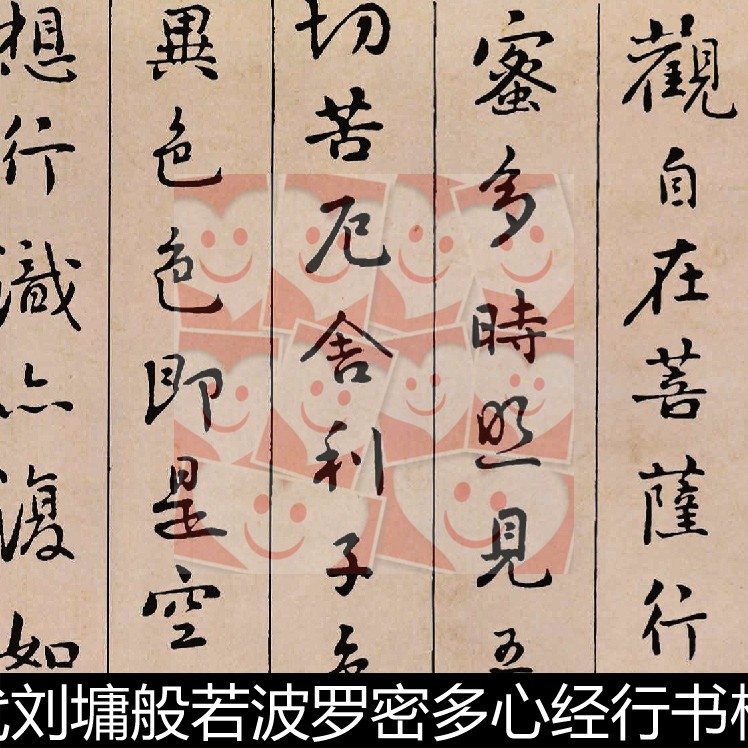 觀自在菩薩行
蜜多時照見五
切苦厄舍利子色
異色色即是空
想行識亦復如
刘墉般若波罗密多心经行书